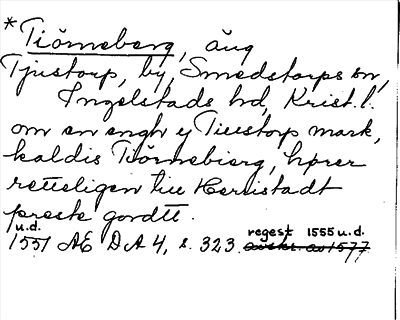 *Tiörneberg, äng
Tjustorp, by, Smedstorps sn,
Ingelstads hd, Krist. l.
om en ængh ÿ Tiustorp mark,
kaldis Tiörnebierg, hører
retteligen till Herristadt
preste gordtt.
u.d. regest 1555 u.d.
1551 ÆÆ DA 4, s. 323. avskr. av 1577